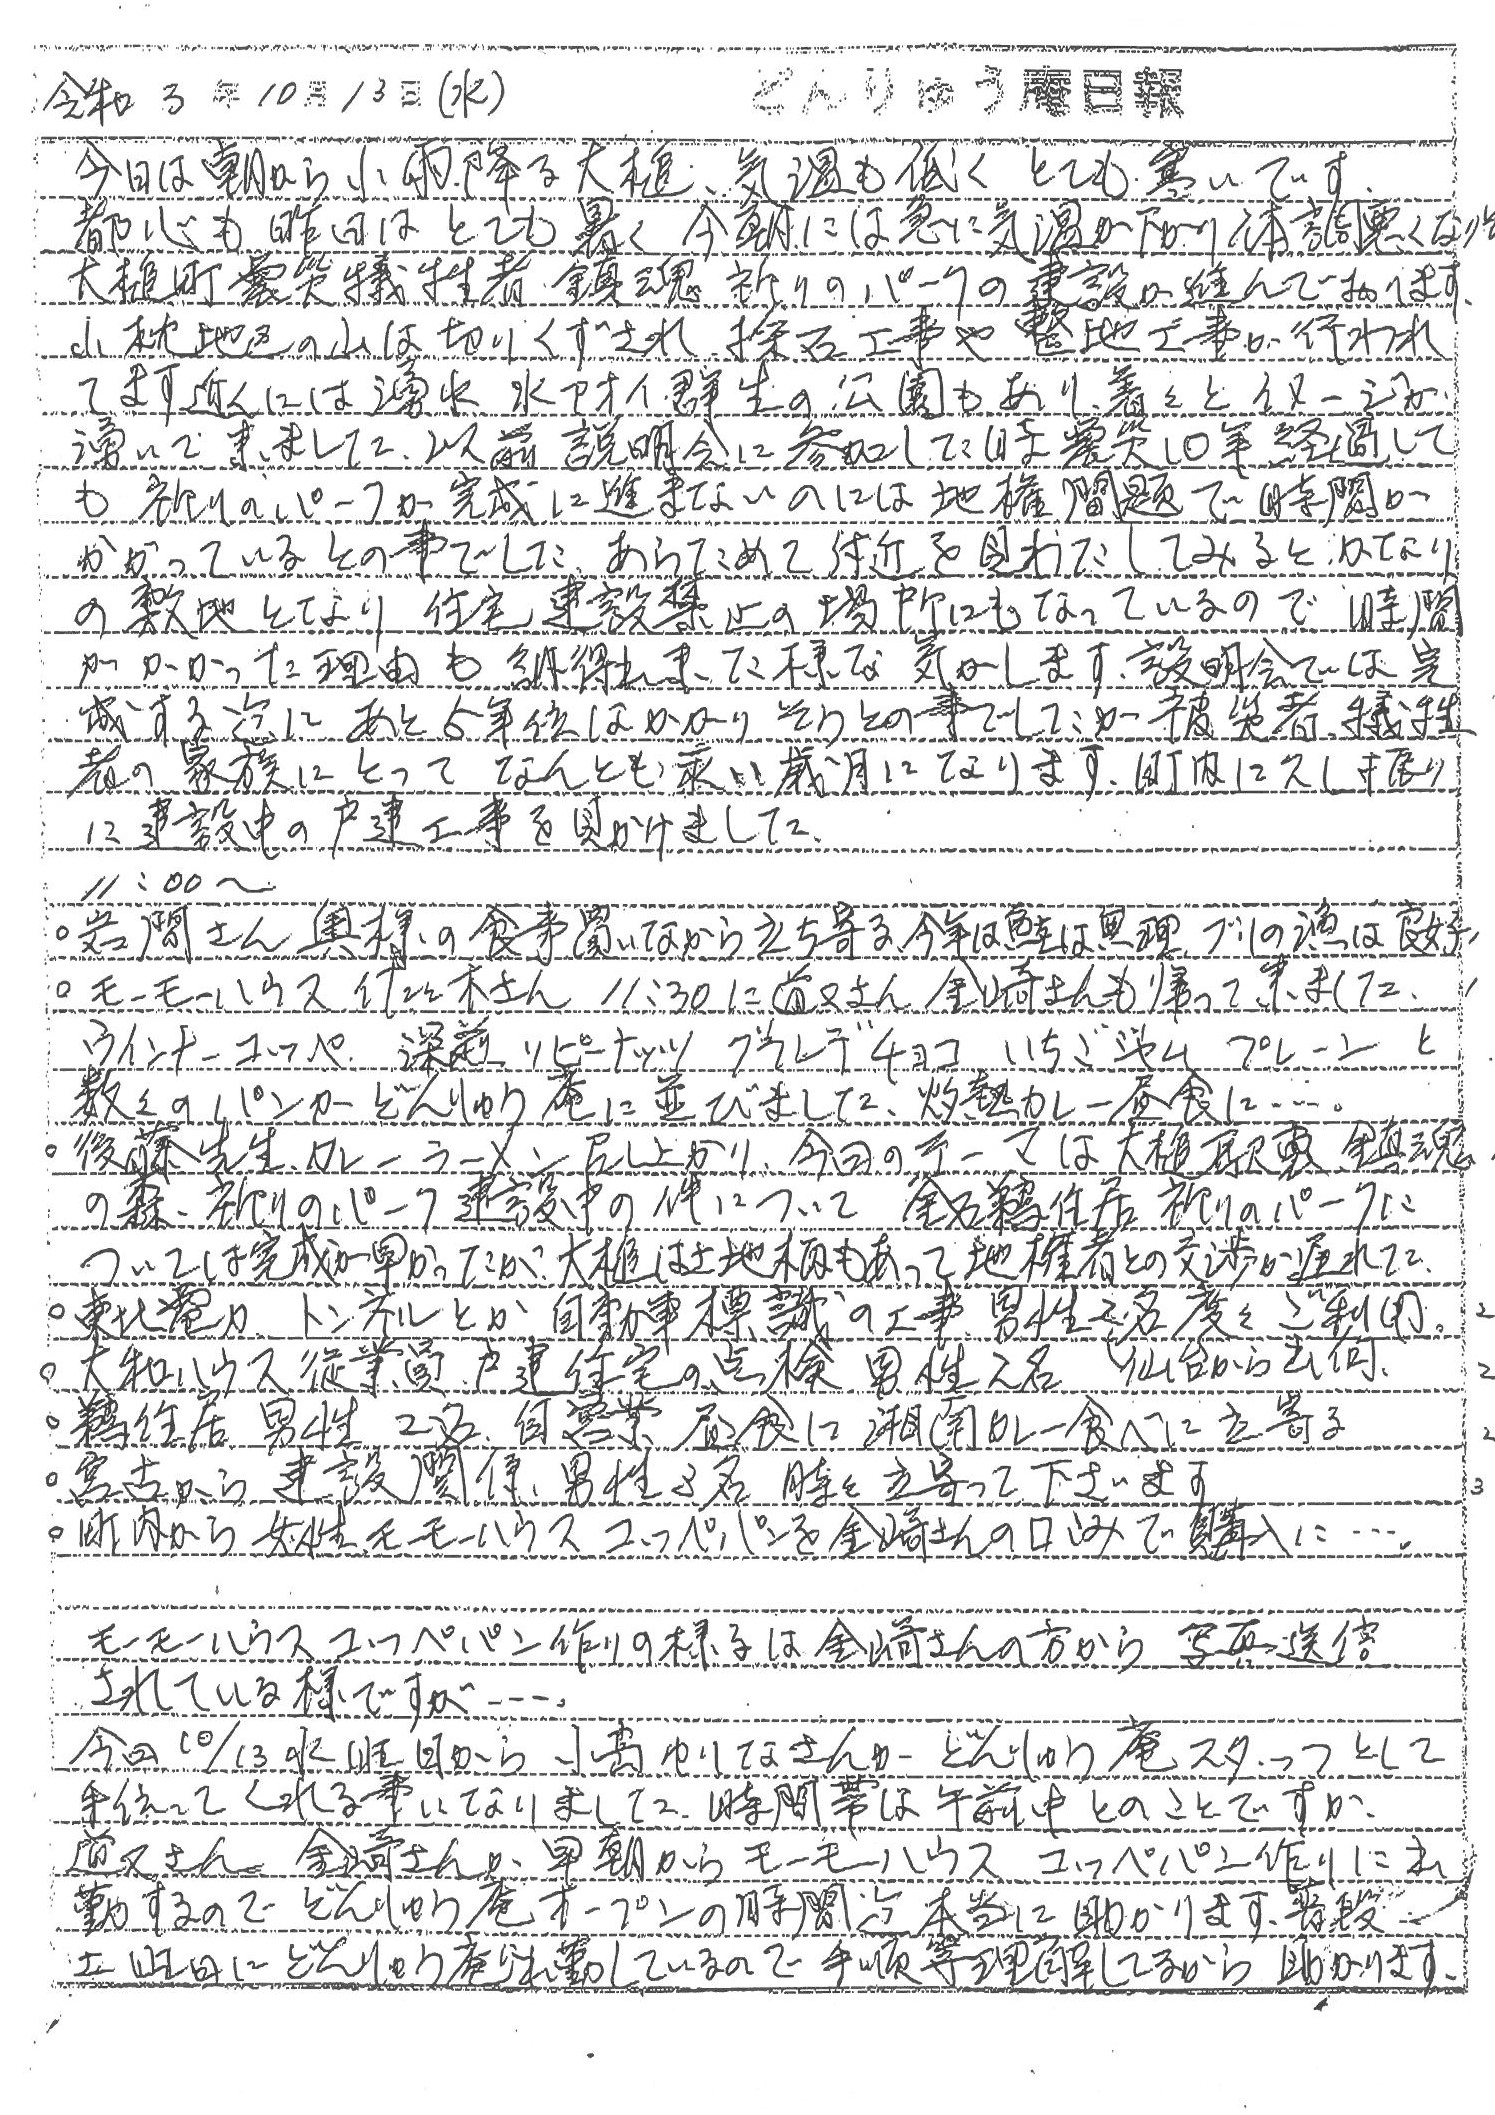 令和 3 年 10 月 13 日 (水) どんりゅう庵日報
今日は朝から小雨降る大槌、気温も低く とても寒いです。
都心も昨日はとても暑く 今朝には急に気温が下がり体調悪くなりそ
大槌町震災犠牲者鎮魂 祈りのパークの建設が進んでおります。
小枕地区の山は切りくずされ 採石工事や整地工事が行われ
てます近くには湧水 水アオイ群生の公園もあり、着々とイメージが
湧いで来ました。以前説明会に参加した時震災10年経過して
も祈りのパークが完成に進まないのには地権問題で時間が
かかっているとの事でした。あらためて付近を見わたしてみるとかなり
の敷地となり 住宅建設禁止の場所にもなっているので時間
がかかった理由も納得出来た様な気がします。説明会では完
成する迄に あと5年位はかかりそうとの事でしたが被災者、犠牲
者の家族にとって なんとも永い歳月になります。町内に久し振り
に建設中の戸建工事を見かけました。
11:00〜
○岩間さん 奥様の食事買いながら立ち寄る、今年は鮭は無理 ブリの漁は良好
○モーモーハウス 佐々木さん 11:30に 金崎さんも帰って来ました、
ウインナーコッペ 深煎りピーナッツ チョコ いちごジャム プレーンと
数々のパンがどんりゅう庵に並びました、灼熱カレー昼食に….
○後藤先生、カレーラーメン召し上がり、今回のテーマは大槌 鎮魂
の森、祈りのパーク建設中の件について 釜石鵜住居 祈りのパークに
ついては完成が早かったが、大槌は土地柄もあって地権者との交渉が遅れた、
○東北電力 トンネルとか自動車標識の工事 男性2名 度々ご利用。 2
○大和ハウス従業員 戸建住宅の点検 男性2名 仙台から 2
○鵜住居 男性 2名 自営業 昼食に湘南カレー食べに立寄る 2
○宮古から 建設関係、男性3名 時々立寄って下さいます 3
○町内から 女性 モーモーハウス コッペパンを金崎さんの口込みで購入に….
モーモーハウス コッペパン作りの様子は金崎さんの方から 写真送信
されている様ですが….
今回 10/13 水曜日から 小高ゆりなさんが どんりゅう庵スタッフとして
手伝ってくれる事になりました。時間帯は午前中とのことですが、
金崎さんが早朝からモーモーハウス コッペパン作りに出
勤するので どんりゅう庵オープンの時間迄 本当に助かります。普段
土曜日にどんりゅう庵出勤しているので手順等理解してるから助かります。